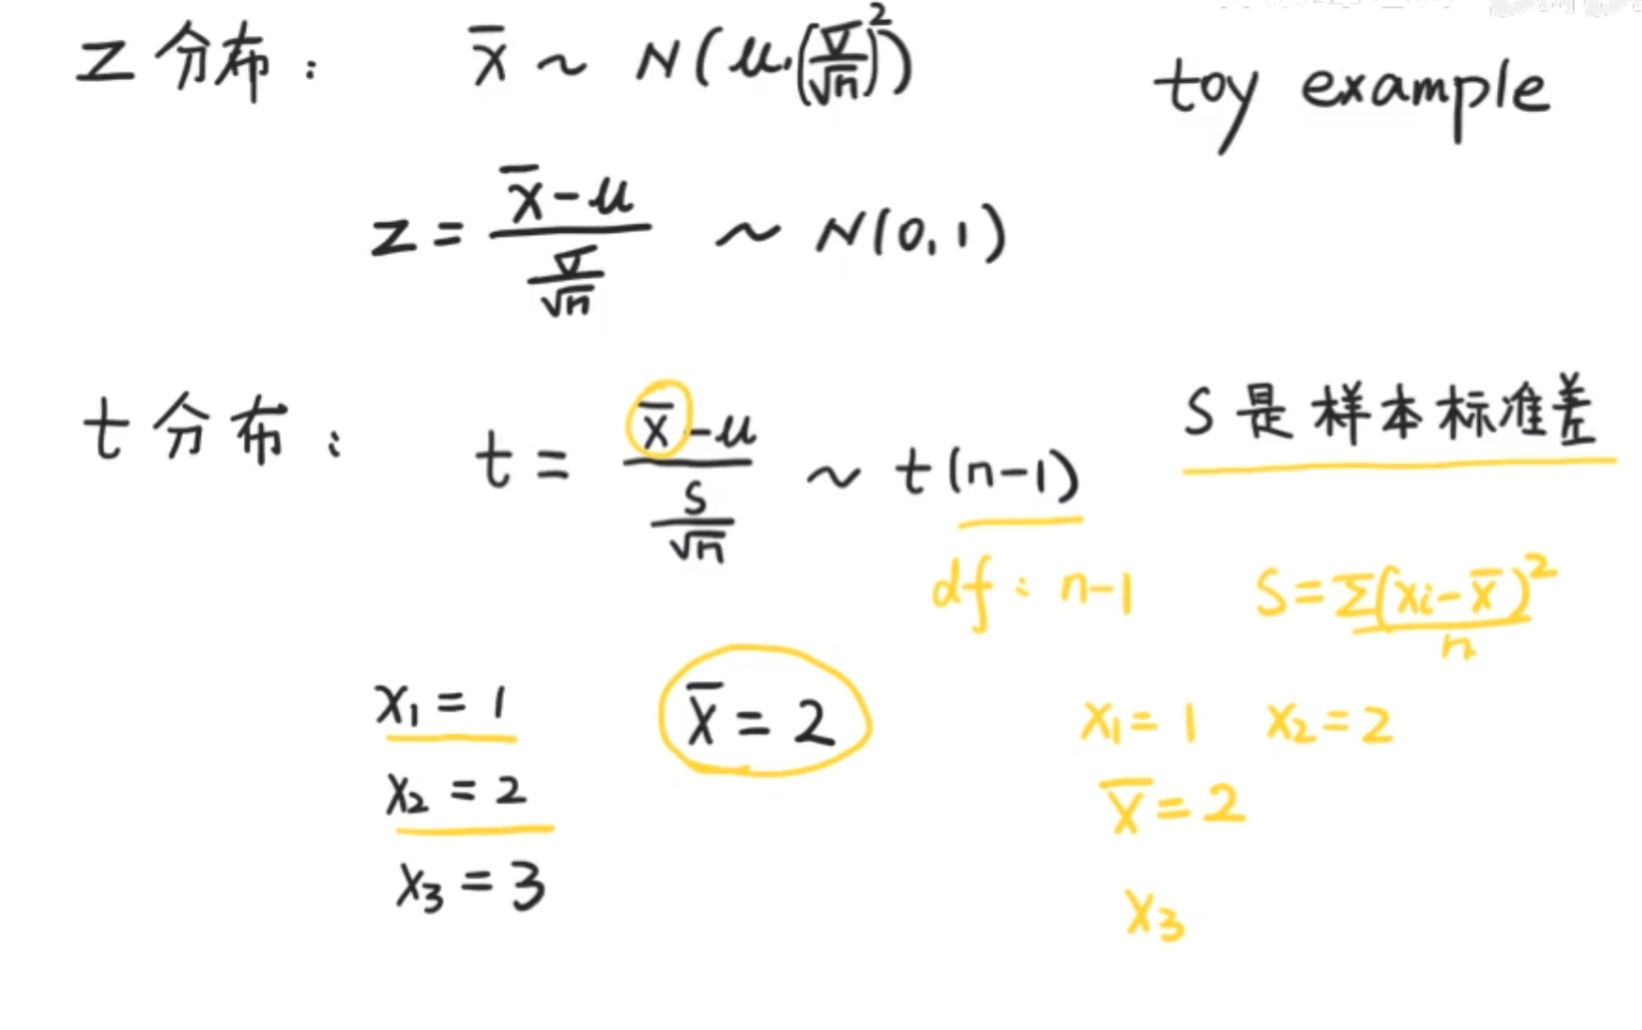 Z 分布： x̄ ~ N(μ, (σ/√n)²)
toy example
Z = (x̄-μ)/(σ/√n) ~ N(0,1)
t 分布： t = (x̄-μ)/(S/√n) ~ t(n-1)
S是样本标准差
df: n-1
S = Σ(xi-x̄)²/n
x₁ = 1
x̄ = 2
x₂ = 2
x₃ = 3
x₁ = 1 x₂ = 2
x̄ = 2
x₃